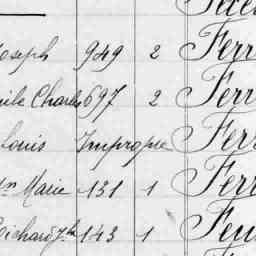 Joseph 949 2 Ferr
mile Charles 697 2 Ferr
Louis Impropre Ferr
Marie 131 1 Ferr
Richard Jh 143 1